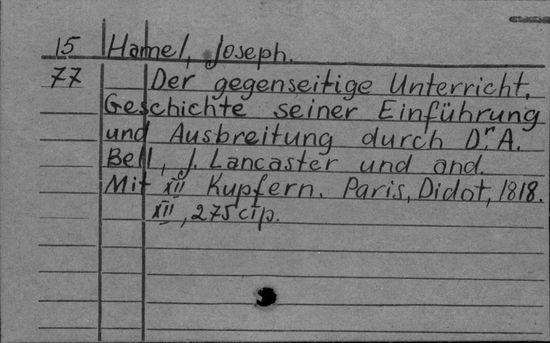 15 Hamel, Joseph.
77 Der gegenseitige Unterricht.
Geschichte seiner Einführung
und Ausbreitung durch Dr. A.
Bell, J. Lancaster und and.
Mit XII Kupfern. Paris, Didot, 1818.
XII, 275 стр.